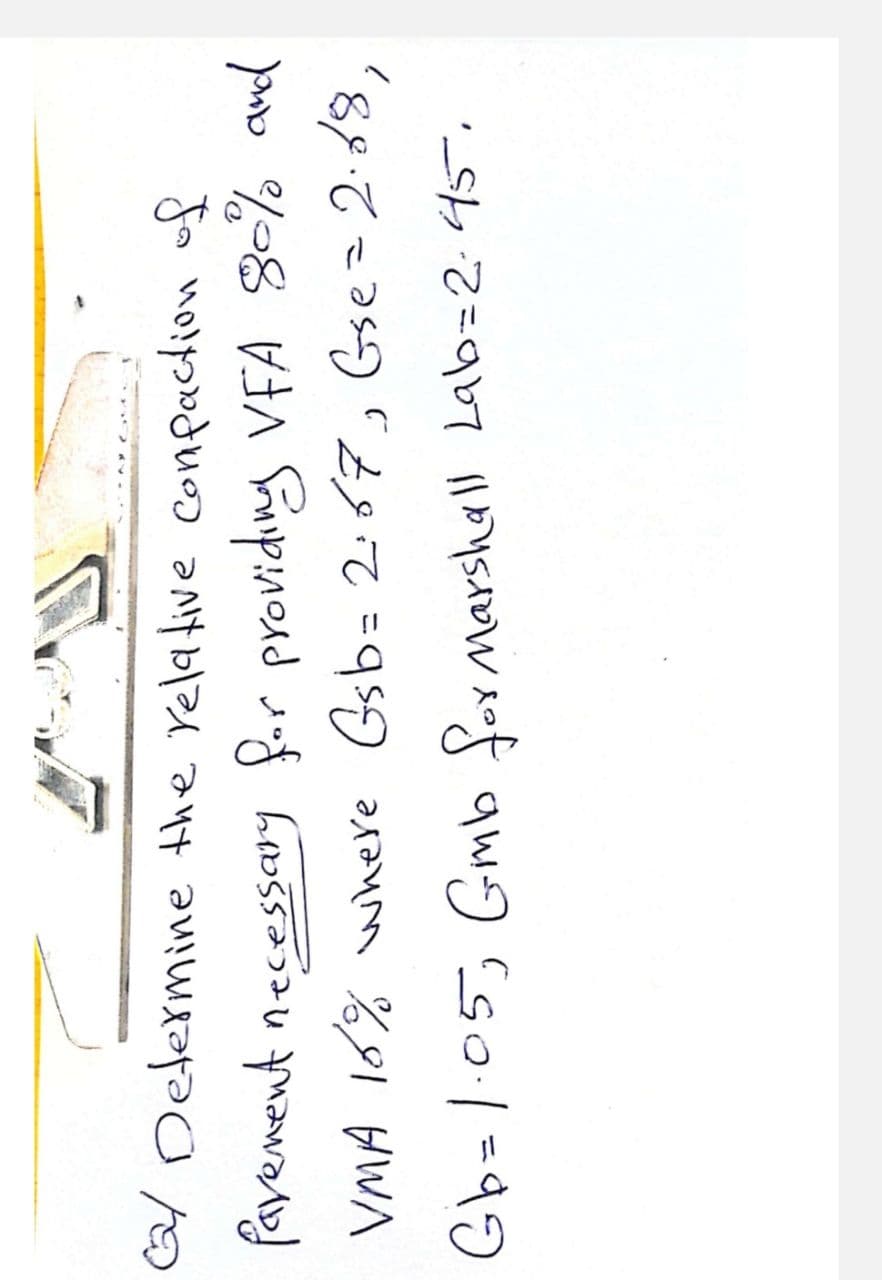 Q/ Determine the relative conpaction of
Pavement necessary for providing VFA 80% and
VMA 16% where Gsb = 2.67, Gse = 2.68,
Gb = 1.05, Gmb for Marshall Lab = 2.45.